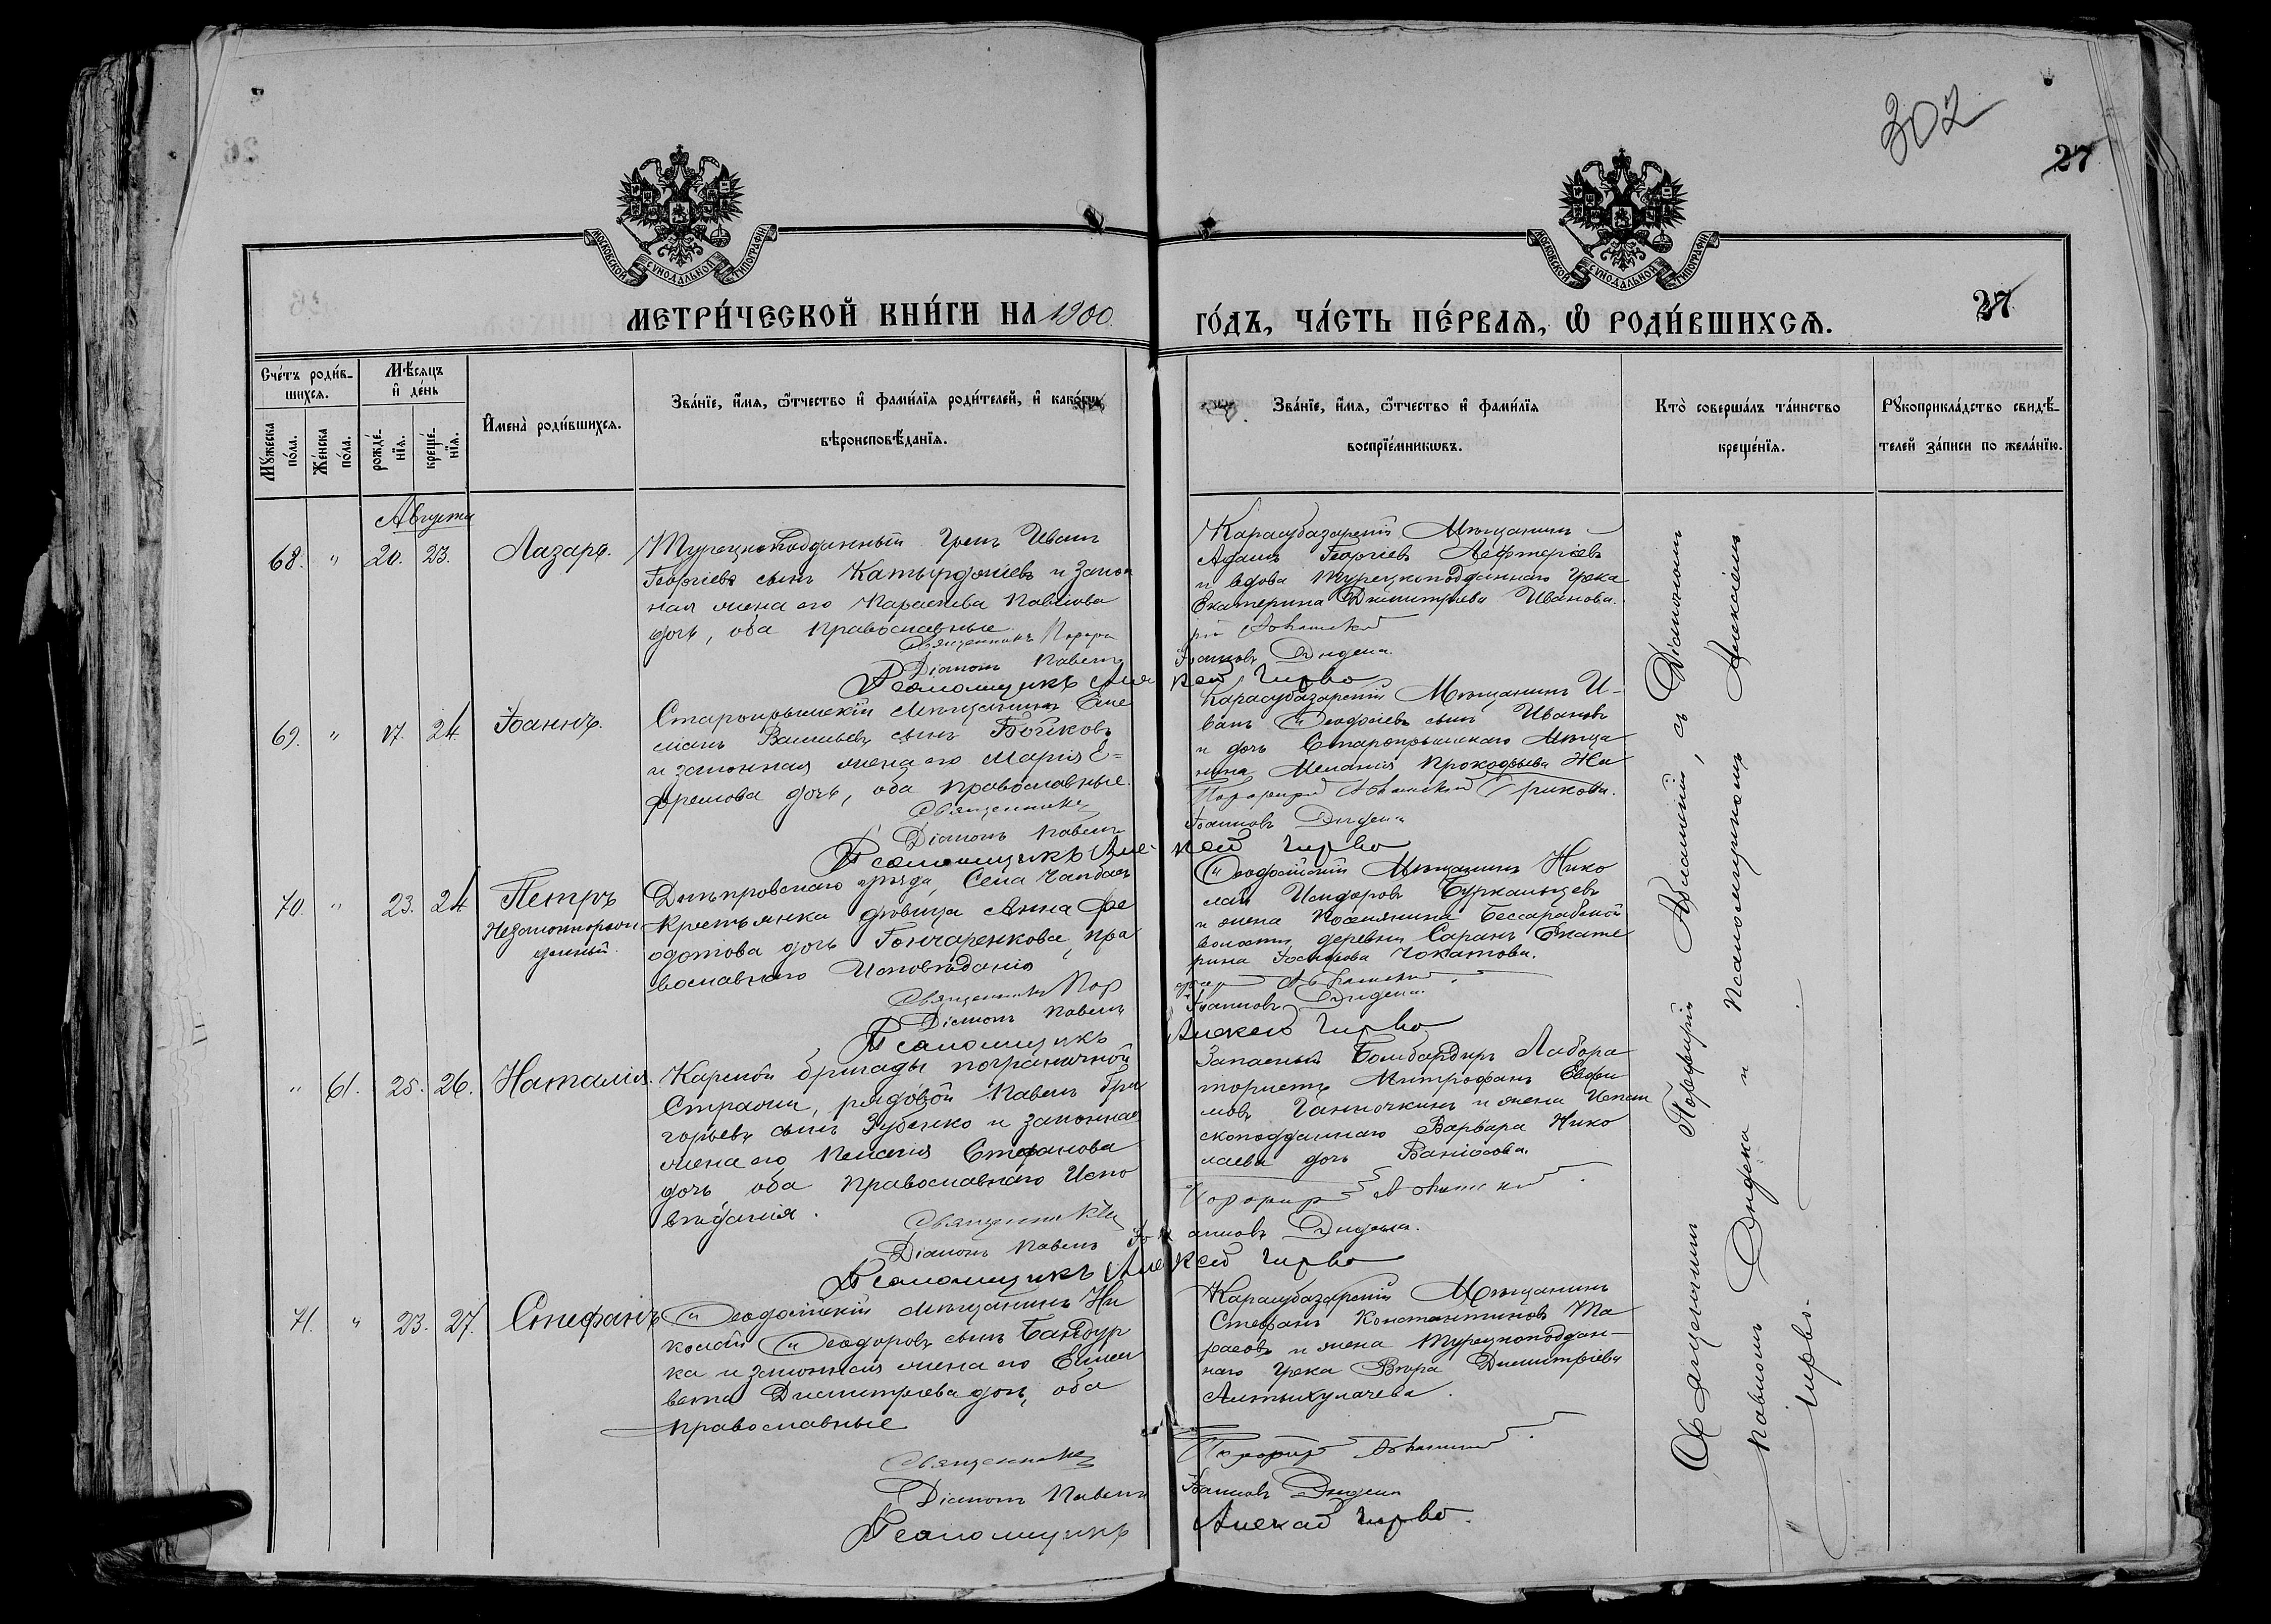 302
27
МОСКОВСКОЙ СѴНОДАЛЬНОЙ ТИПОГРАФІИ
МОСКОВСКОЙ СѴНОДАЛЬНОЙ ТИПОГРАФІИ
МЕТРИ́ЧЕСКОЙ КНИ́ГИ НА 1900
ГО́ДЪ, ЧА́СТЬ ПЕ́РВАѦ, Ѽ РОДИ́ВШИХСѦ.
27
Сче́тъ роди́в-
шихсѧ.
Мужеска по́ла.
Же́нска по́ла.
Мѣ́сѧцъ и҆ де́нь
рожде́-
нїѧ.
креще́-
нїѧ.
И҆мена̀ роди́вшихсѧ.
Зва́нїе, и҆́мѧ, ѻ҆́тчество и҆ фами́лїѧ роди́телей, и҆ како́гѡ
вѣроисповѣ́данїѧ.
Зва́нїе, и҆́мѧ, ѻ҆́тчество и҆ фами́лїѧ
воспрїе́мникѡвъ.
Кто̀ соверша́лъ та́инство
креще́нїѧ.
Рꙋкоприкла́дство свидѣ́-
телей за́писи по жела́нїю.
Августа
68. " 20. 23. Лазарь.
Турецкоподданный Грекъ Иванъ
Георгіевъ сынъ Катырджіевъ и закон
ная жена его Параскева Павлова
дочь, оба православные.
Священникъ Порфи
Діаконъ Павелъ
Псаломщикъ Але
Карасубазарскій Мѣщанинъ
Адамъ Георгіевъ Лефтеріевъ
и вдова Турецкоподданнаго Грека
Екатерина Димитріева Иванова.
рій
Іоанновъ Дидена
ксѣй Чирво
69. " 17. 24. Іоаннъ.
Старокрымскій Мѣщанинъ Еме
ліанъ Васильевъ сынъ Бойковъ
и законная жена его Марія Е=
фремова дочь, оба православные.
Священникъ
Діаконъ Павелъ
Псаломщикъ Але-
Карасубазарскій Мѣщанинъ И-
ванъ Ѳеодосіевъ сынъ Ивановъ
и дочь Старокрымскаго Мѣща
нина Меланія Прокофьева Жи
Порфирій
Іоанновъ Дидена
ксѣй Чирво
70. " 23. 24. Петръ
Незаконнорож
денный
Днѣпровскаго уѣзда, Села Чалбасъ
Крестьянка дѣвица Анна Фе
одотова дочь Гончаренкова, пра
вославнаго Исповѣданія
Священникъ Пор
Діаконъ Павелъ
Псаломщикъ
Ѳеодосійскій Мѣщанинъ Нико
лай Исидоровъ
и жена Поселянина Бессарабской
волости деревни Саранъ Екате
рина Іосифова Чокатова.
Іоанновъ Дидена
Алексѣй Чирво
" 61. 25. 26. Наталія.
Карсской бригады пограничной
Стражи, рядовой Павелъ Гри
горьевъ сынъ Зубенко и законная
жена его Пелагія Стефанова
дочь, оба Православнаго Испо
вѣданія.
Священникъ
Діаконъ Павелъ
Псаломщикъ Але
Запасный Бомбардиръ Лабора
тористъ Митрофанъ Евфи
мовъ Ганночкинъ и жена
скоподданнаго Варвара Нико
лаева дочь
Порфирій
Іоанновъ Дидена.
ксѣй Чирво
71. " 23. 27. Стефанъ
Ѳеодосійскій Мѣщанинъ Ни
колай Ѳеодоровъ сынъ Бандур
ка и законная жена его Елиса
вета Димитріева дочь, оба
православные
Священникъ
Діаконъ Павелъ
Псаломщикъ
Карасубазарскій Мѣщанинъ
Стефанъ Константиновъ Та
расовъ и жена Турецкоподдан-
наго Грека Вѣра Димитріева
Порфирій
Іоанновъ Дидена
Алексѣй Чирво.
Священникъ Порфирій, съ Діакономъ
Павломъ Дидена и Псаломщикомъ Алексѣемъ
Чирво.